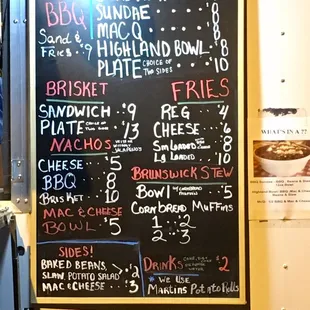 BBQ
Sand &
Fries $9
SUNDAE 8
MAC Q 8
HIGHLAND BOWL 8
PLATE CHOICE OF TWO SIDES 10
BRISKET
SANDWICH $9
PLATE 13
NACHOS
CHEESE $5
BBQ $8
BRISKET 10
MAC & CHEESE
BOWL $5
SIDES!
BAKED BEANS
SLAW POTATO SALAD $2
MAC & CHEESE 3
FRIES
REG $4
CHEESE 6
Sm Loaded 8
Lg Loaded 10
BRUNSWICK STEW
BOWL $5
CORNBREAD MUFFINS
1 $2
2 3
DRINKS $2
* WE USE
MARTINS Potato Rolls
WHAT'S IN A ??